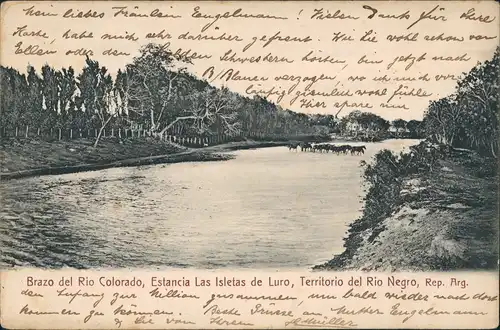 Mein liebes Fräulein Engelmann! Vielen Dank für Ihre
Karte, habe mich sehr darüber gefreut. Wie Sie wohl schon von
Ellen, oder den Schwestern hörten, bin ich jetzt nach
B/Blanca verzogen, wo ich mich vor-
läufig wohl fühle.
Hier spare nun
Brazo del Rio Colorado, Estancia Las Isletas de Luro, Territorio del Rio Negro, Rep. Arg.
den Anfang zur Million zusammen, um bald wieder nach dort
kommen zu können. Beste Grüsse an Mutter Engelmann
u. Sie von Ihrem